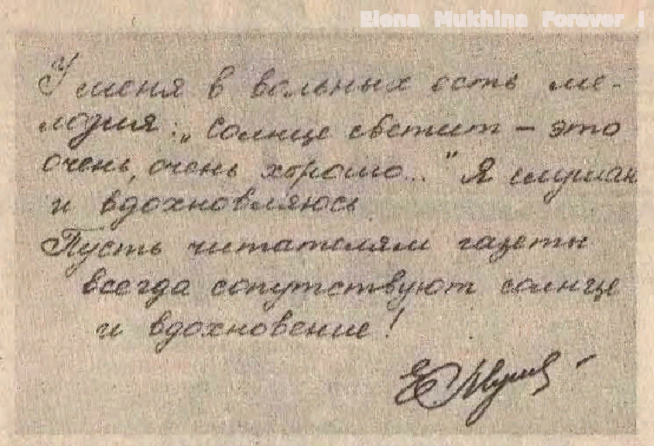 Elena Mukhina Forever
У меня в вольных есть ме-
лодия: „Солнце светит – это
очень, очень хорошо..." Я слушаю
и вдохновляюсь.
Пусть читателям газеты
всегда сопутствуют солнце
и вдохновение!